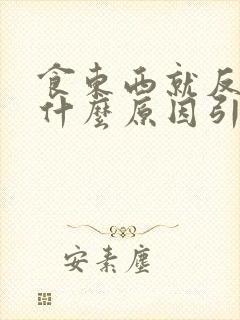 食東西就反
什麼原因引
安素塵